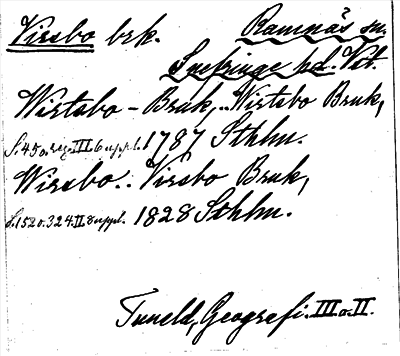 Virsbo brk. Ramnäs sn.
Snefringe hd. Vstl.
Wirtsbo-Bruk, .. Wirtsbo Bruk,
S. 45 o. reg. III. 6 uppl. 1787 Sthlm.
Wirsbo .. Virsbo Bruk,
S. 152 o. 324. II. 8 uppl. 1828 Sthlm.
Tuneld, Geografi. III o. II.